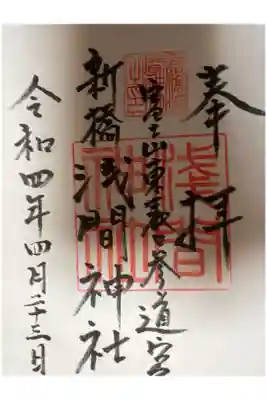 奉拝
富士山東表口参道宮
新橋浅間神社
令和四年四月二十三日
淺間
神社